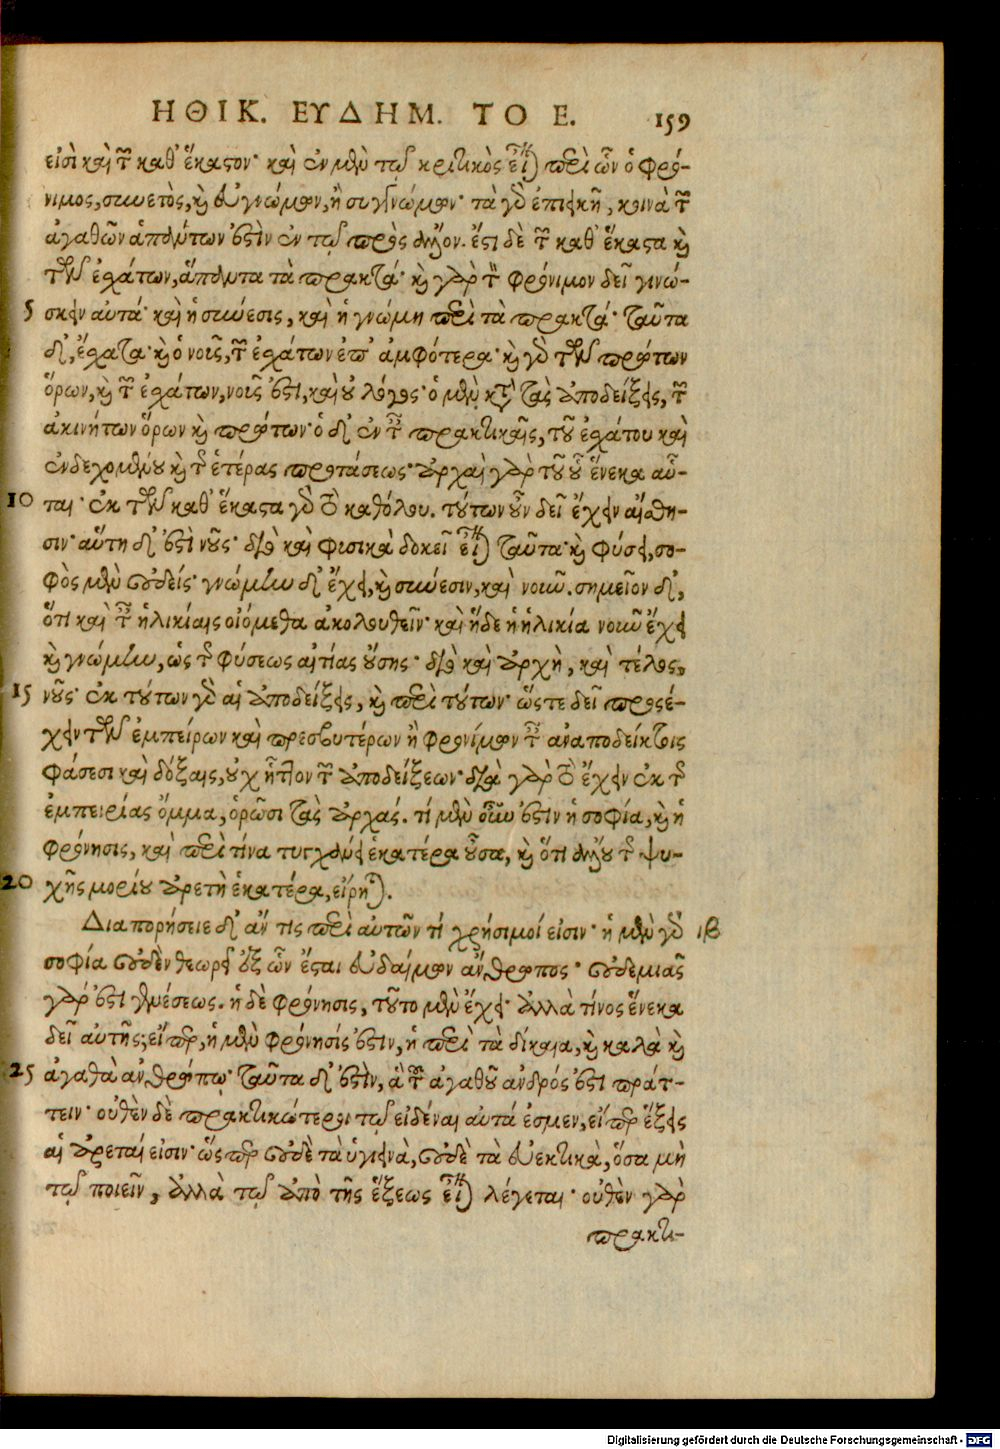 ΗΘΙΚ. ΕΥΔΗΜ. ΤΟ Ε. 159
εἰσὶ καὶ τῶν καθ' ἕκαστον· καὶ ἐν μὲν τῷ κριτικὸς εἶναι περὶ ὧν ὁ φρό-
νιμος, συνετὸς, καὶ εὐγνώμων, ἢ συγγνώμων· τὰ γὰρ ἐπιεικῆ, κοινὰ τῶν
ἀγαθῶν ἁπάντων ἐστὶν ἐν τῷ πρὸς ἄλλον. ἔστι δὲ τῶν καθ' ἕκαστα καὶ
τῶν ἐσχάτων, ἅπαντα τὰ πρακτά· καὶ γὰρ τὸν φρόνιμον δεῖ γινώ-
5 σκειν αὐτά· καὶ ἡ σύνεσις, καὶ ἡ γνώμη περὶ τὰ πρακτά· ταῦτα
δ', ἔσχατα· καὶ ὁ νοῦς, τῶν ἐσχάτων ἐπ' ἀμφότερα· καὶ γὰρ τῶν πρώτων
ὅρων, καὶ τῶν ἐσχάτων, νοῦς ἐστι, καὶ οὐ λόγος· ὁ μὲν κατὰ τὰς ἀποδείξεις, τῶν
ἀκινήτων ὅρων καὶ πρώτων· ὁ δ' ἐν ταῖς πρακτικαῖς, τοῦ ἐσχάτου καὶ
ἐνδεχομένου καὶ τῆς ἑτέρας προτάσεως· ἀρχαὶ γὰρ τοῦ οὗ ἕνεκα αὗ-
10 ται· ἐκ τῶν καθ' ἕκαστα γὰρ τὸ καθόλου. τούτων οὖν δεῖ ἔχειν αἴσθη-
σιν· αὕτη δ' ἐστὶ νοῦς· διὸ καὶ φυσικὰ δοκεῖ εἶναι ταῦτα· καὶ φύσει, σο-
φὸς μὲν οὐδείς· γνώμην δ' ἔχει, καὶ σύνεσιν, καὶ νοῦν. σημεῖον δ',
ὅτι καὶ ταῖς ἡλικίαις οἰόμεθα ἀκολουθεῖν· καὶ ἥδε ἡ ἡλικία νοῦν ἔχει
καὶ γνώμην, ὡς τῆς φύσεως αἰτίας οὔσης· διὸ καὶ ἀρχὴ, καὶ τέλος,
15 νοῦς· ἐκ τούτων γὰρ αἱ ἀποδείξεις, καὶ περὶ τούτων· ὥστε δεῖ προςέ-
χειν τῶν ἐμπείρων καὶ πρεσβυτέρων ἢ φρονίμων ταῖς ἀναποδείκτοις
φάσεσι καὶ δόξαις, οὐχ ἧττον τῶν ἀποδείξεων· διὰ γὰρ τὸ ἔχειν ἐκ τῆς
ἐμπειρίας ὄμμα, ὁρῶσι τὰς ἀρχάς. τί μὲν οὖν ἐστὶν ἡ σοφία, καὶ ἡ
φρόνησις, καὶ περὶ τίνα τυγχάνει ἑκατέρα οὖσα, καὶ ὅτι ἄλλου τῆς ψυ-
20 χῆς μορίου ἀρετὴ ἑκατέρα, εἴρηται.
Διαπορήσειε δ' ἄν τις περὶ αὐτῶν τί χρήσιμοί εἰσιν· ἡ μὲν γὰρ ιβ
σοφία οὐδὲν θεωρεῖ ἐξ ὧν ἔσται εὐδαίμων ἄνθρωπος· οὐδεμιᾶς
γάρ ἐστι γενέσεως. ἡ δὲ φρόνησις, τοῦτο μὲν ἔχει· ἀλλὰ τίνος ἕνεκα
δεῖ αὐτῆς; εἴπερ, ἡ μὲν φρόνησίς ἐστιν, ἡ περὶ τὰ δίκαια, καὶ καλὰ καὶ
25 ἀγαθὰ ἀνθρώπῳ· ταῦτα δ' ἐστὶν, ἃ τοῦ ἀγαθοῦ ἀνδρός ἐστι πράτ-
τειν· οὐθὲν δὲ πρακτικώτεροι τῷ εἰδέναι αὐτά ἐσμεν, εἴπερ ἕξεις
αἱ ἀρεταί εἰσιν· ὥςπερ οὐδὲ τὰ ὑγιεινὰ, οὐδὲ τὰ εὐεκτικὰ, ὅσα μὴ
τῷ ποιεῖν, ἀλλὰ τῷ ἀπὸ τῆς ἕξεως εἶναι λέγεται· οὐθὲν γὰρ
πρακτι-
Digitalisierung gefördert durch die Deutsche Forschungsgemeinschaft - DFG